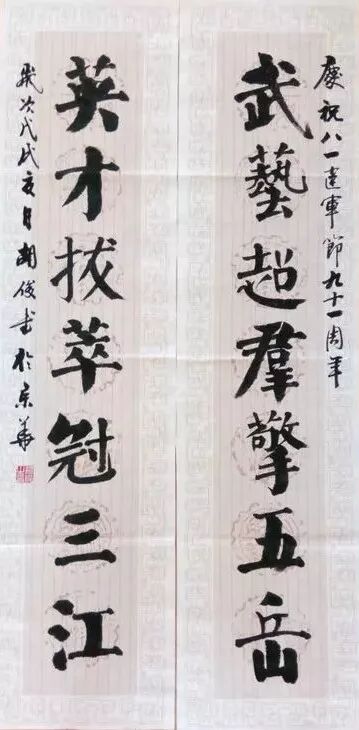 慶祝八一建軍節九十一周年
武藝超羣擎五岳
英才拔萃冠三江
歲次戊戌夏月胡俊書於京華